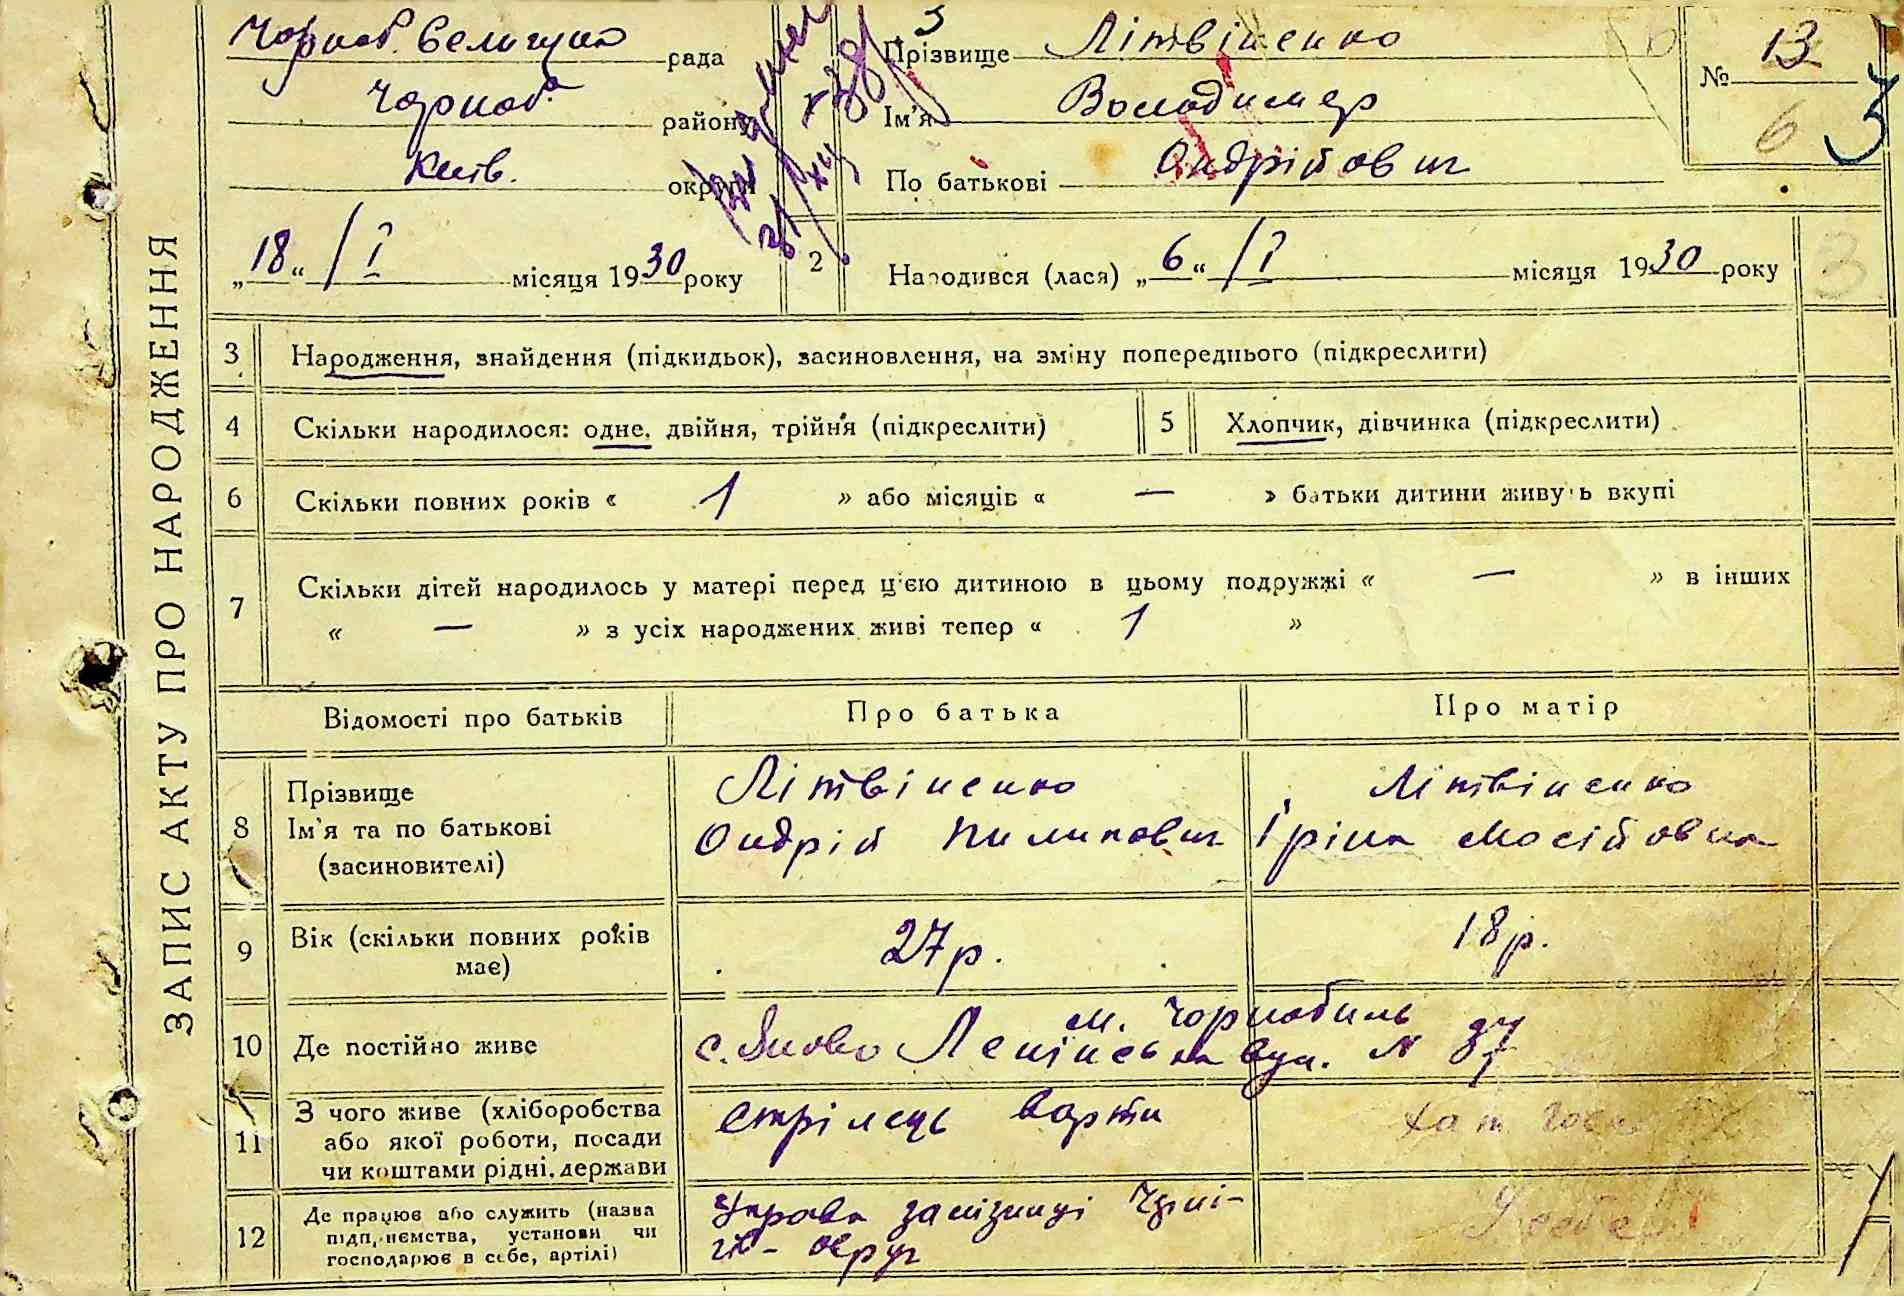 ЗАПИС АКТУ ПРО НАРОДЖЕННЯ
Чорноб. Селищна рада
Чорноб. району
Київ. округи
„18“ / I місяця 1930 року
3
Прізвище Літвіненко
Ім'я Володимер
По батькові Ондрійович
№ 13
6 3
2 Народився (лася) „6“ / I місяця 1930 року
3
3 Народження, знайдення (підкидьок), засиновлення, на зміну попереднього (підкреслити)
4 Скільки народилося: одне, двійня, трійня (підкреслити)
5 Хлопчик, дівчинка (підкреслити)
6 Скільки повних років « 1 » або місяців « — » батьки дитини живуть вкупі
7 Скільки дітей народилось у матері перед цією дитиною в цьому подружжі « — » в інших
« — » з усіх народжених живі тепер « 1 »
Відомості про батьків Про батька Про матір
8 Прізвище
Ім'я та по батькові
(засиновителі)
Літвіненко
Ондрій Пилипович
Літвіненко
Іріна Мосійовна
9 Вік (скільки повних років
має)
27р. 18р.
10 Де постійно живе
м. Чорнобиль
с. Яново Ленінська вул. N 37
11 З чого живе (хліборобства
або якої роботи, посади
чи коштами рідні, держави
стрілець варти
хат. госп
12 Де працює або служить (назва
підприємства, установи чи
господарює в себе, артілі)
Управа залізниці Черні-
гів- округ
У себе